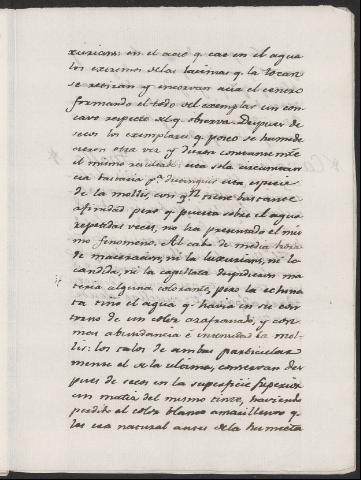 xurians: en el acto q. cae en el agua
los extremos de las lacinias q. la tocan
se retiran y encorvan acia el centro
formando el todo del exemplar un con-
cavo respecto del q. observa. Despues de
secos los exemplares q. poseo se humede
cieron otra vez y dieron constantemte
el mismo resultado: esta sola circunstan
cia bastaria pa. distinguir esta especie
de la mollis, con qn. tiene bastante
afinidad pero q. puesta sobre el agua
repetidas veces, no ha presentado el mis
mo fenomeno. Al cabo de media hora
de maceracion, ni la luxurians, ni la
candida, ni la capellata despidieron ma
teria alguna colorante, pero la echina
ta tiño el agua q. havia en su con
torno de un color azafranado, y con
mas abundancia è intensidad la mol
lis: los talos de ambas particular
mente el de la ultima, conservan des
pues de secos en la superficie superior
un matiz del mismo tinte, haviendo
perdido el color blanco amarillento q.
les era natural antes de la humecta